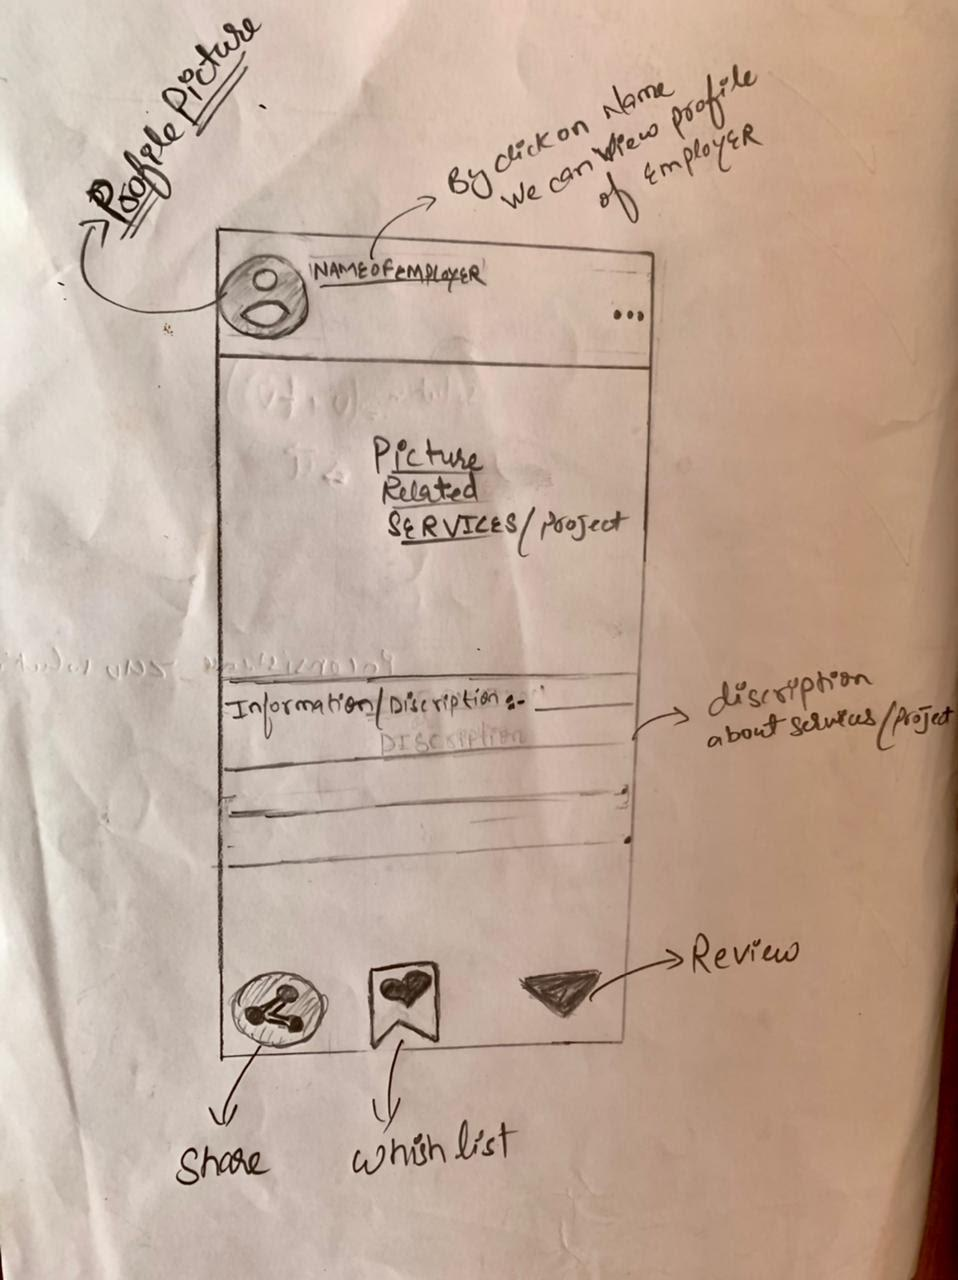 Profile Picture
By click on Name
We can view profile
of EMPLOYER
NAME OF EMPLOYER
Picture
Related
SERVICES/Project
Information/Discription :-
DISCRIPTION
discription
about services/Project
Review
Share
whish list